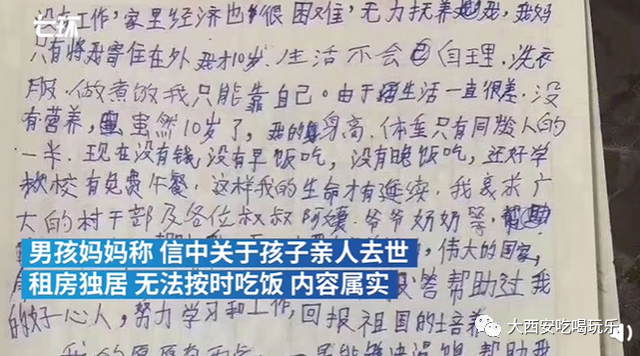 七环
没有工作，家里经济也很困难，无力扶养我，我妈
只有将我寄住在外 我才10岁．生活不会自理．洗衣
服．做煮饭我只能靠自己。由于生活一直很差．没
有营养，虽然10岁了，我的身高．体重只有同龄人的
一半．现在没有钱，没有早饭吃，没有晚饭吃，还好学
校有免费午餐．这样我的生命才有延续．我哀求广
大的村干部及各位叔叔 阿姨．爷爷 奶奶等，帮
伟大的国家，
男孩妈妈称 信中关于孩子亲人去世
租房独居 无法按时吃饭 内容属实
答帮助过我
的好心人，努力学习和工作，回报祖国的培养
大西安吃喝玩乐